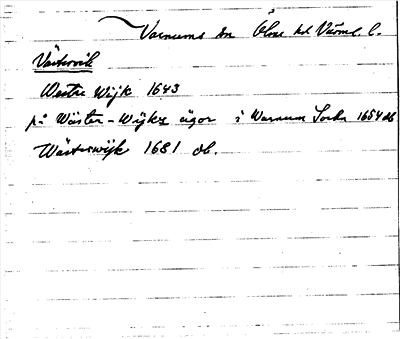 Varnums sn Ölme hd Värml. l.
Västervik
Westre Wijk 1643
på Wäster-Wijks ägor i Warnum Sockn 1654 db
Wästerwijk 1681 db.